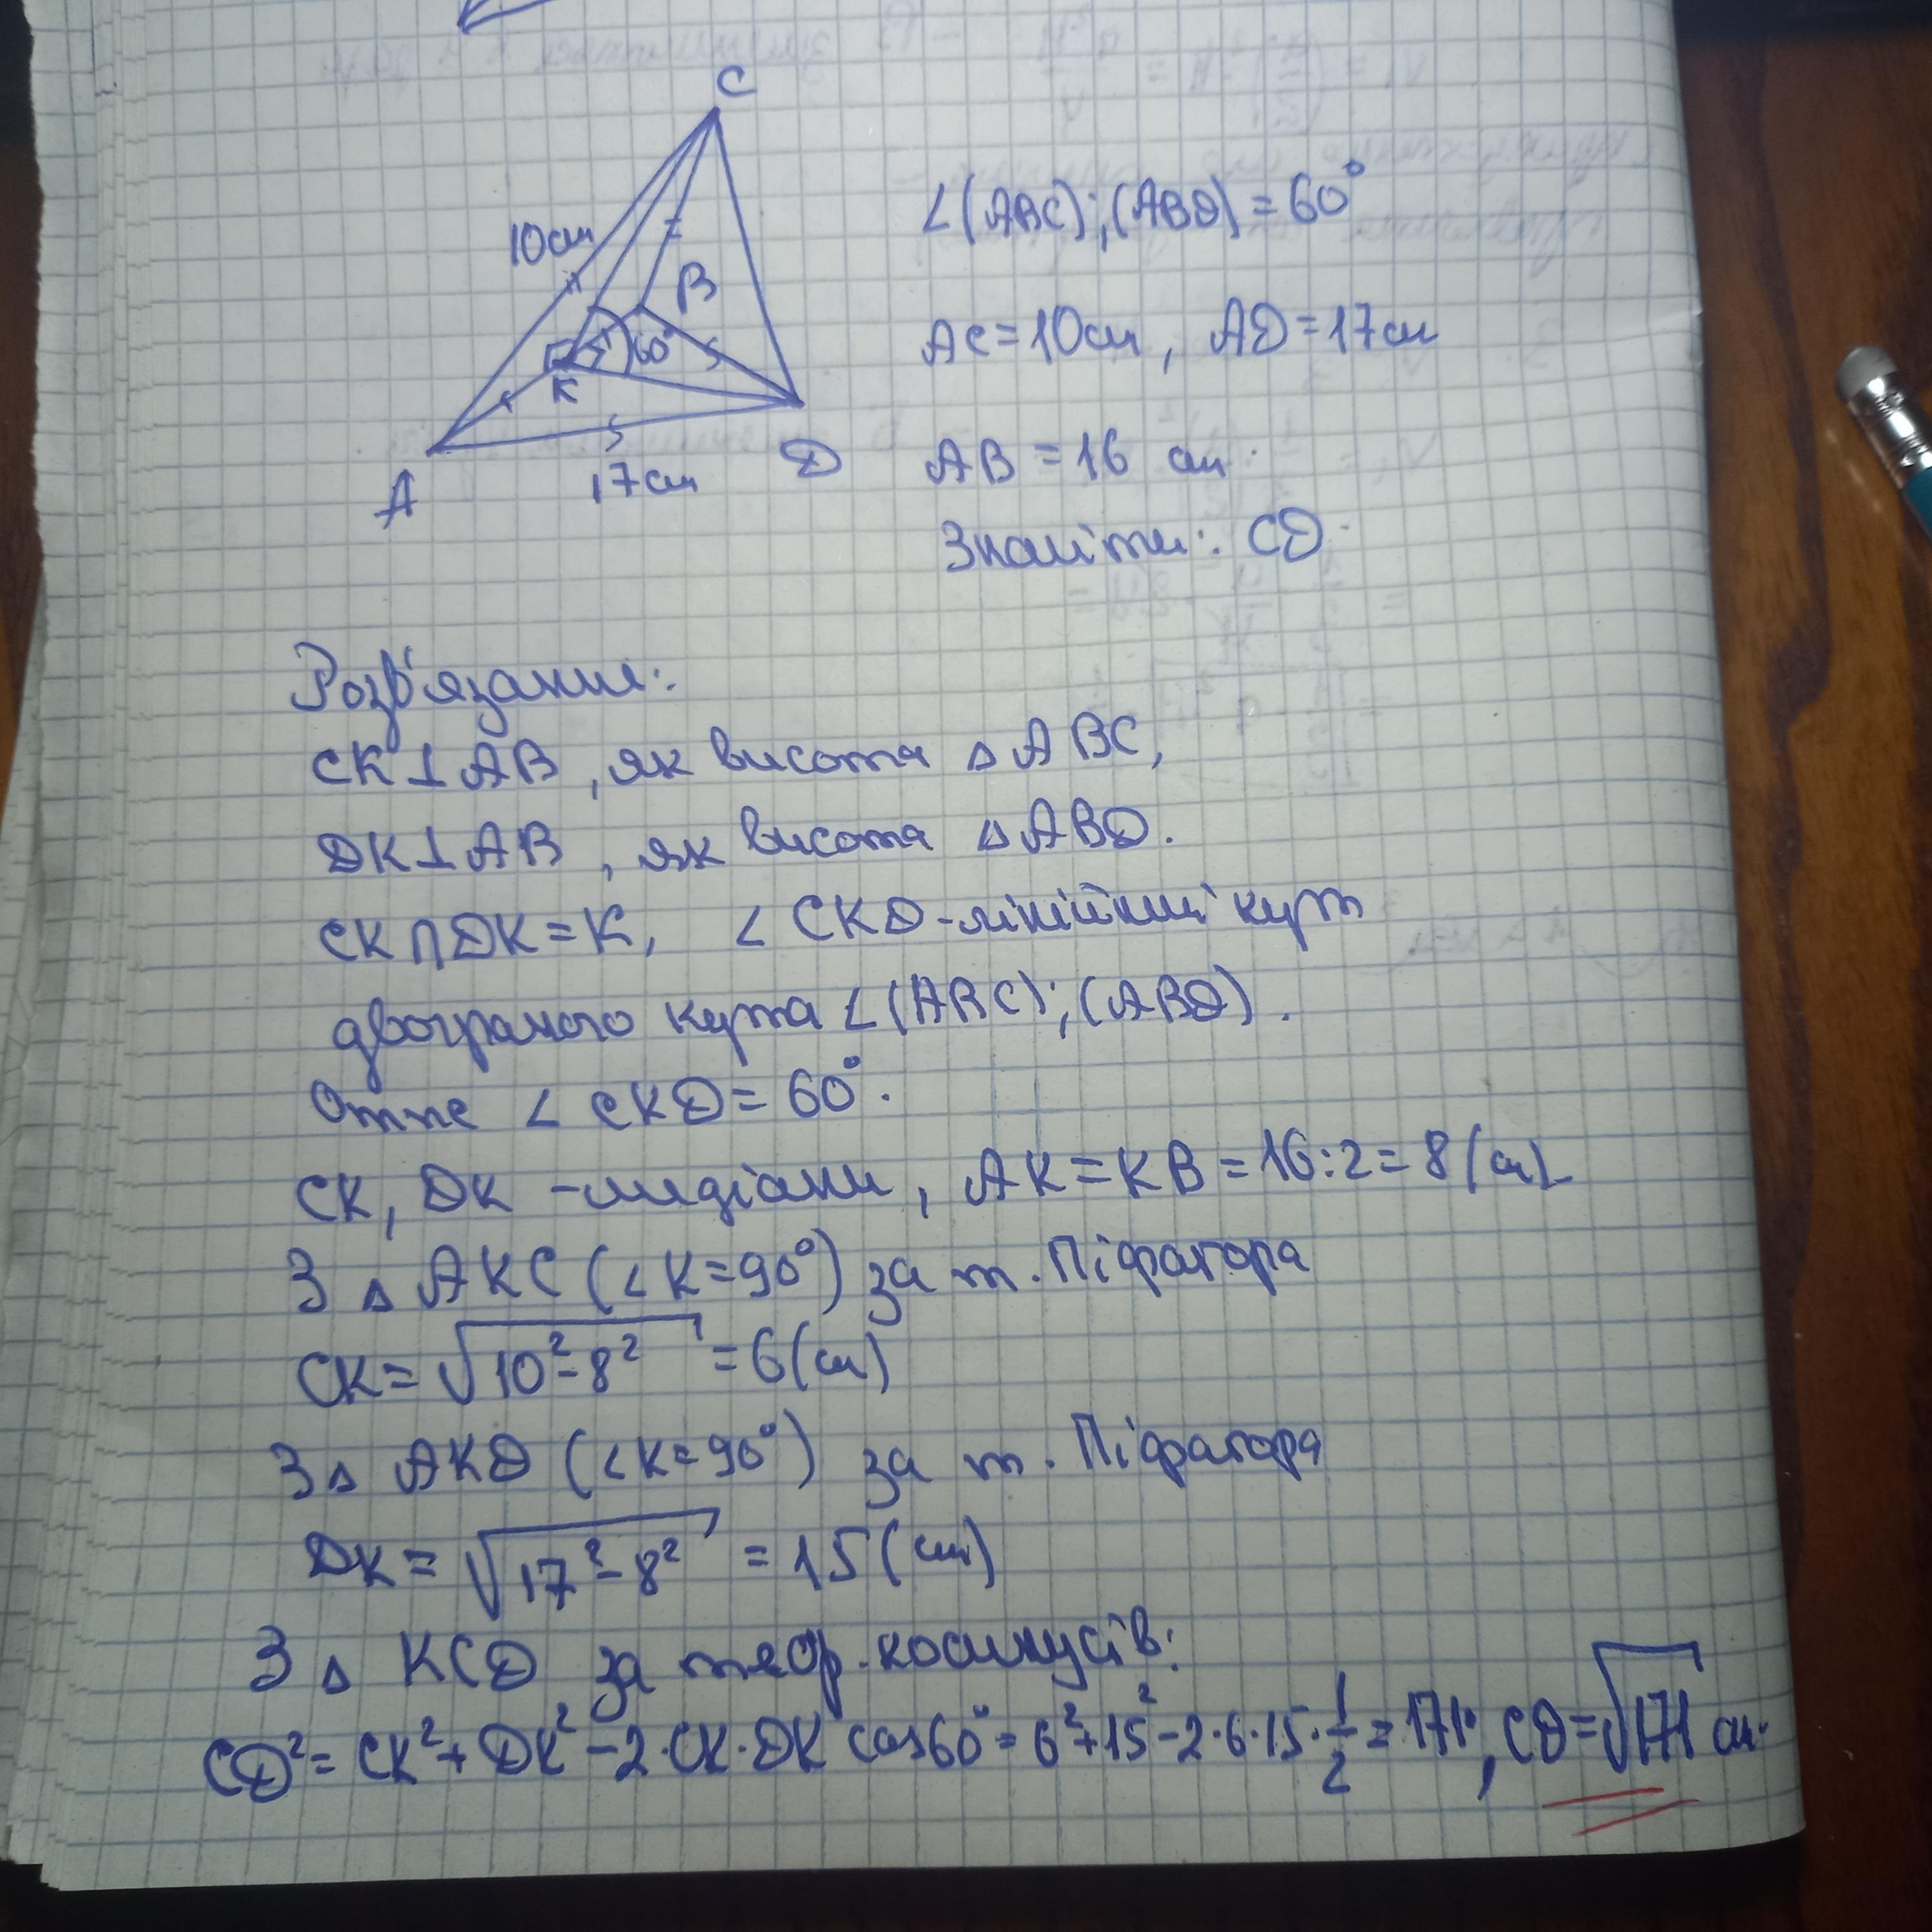 C
10см
B
60°
K
A
17см
D
∠(ABC);(ABD)=60°
AC=10см, AD=17см
AB=16 см.
Знайти: CD.
Розв'язання:
CK⊥AB, як висота △ABC,
DK⊥AB, як висота △ABD.
CK∩DK=K, ∠CKD-лінійний кут
двогранного кута ∠(ABC);(ABD).
Отже ∠CKD=60°.
CK, DK -медіани, AK=KB=16:2=8(см)
З △AKC (∠K=90°) за т. Піфагора
CK=√10²-8² =6(см)
З △ AKD (∠K=90°) за т. Піфагора
DK=√17²-8² =15(см)
З △ KCD за теор. косинусів:
CD²=CK²+DK²-2·CK·DK cos60°=6²+15²-2·6·15·1/2=171, CD=√171 см.